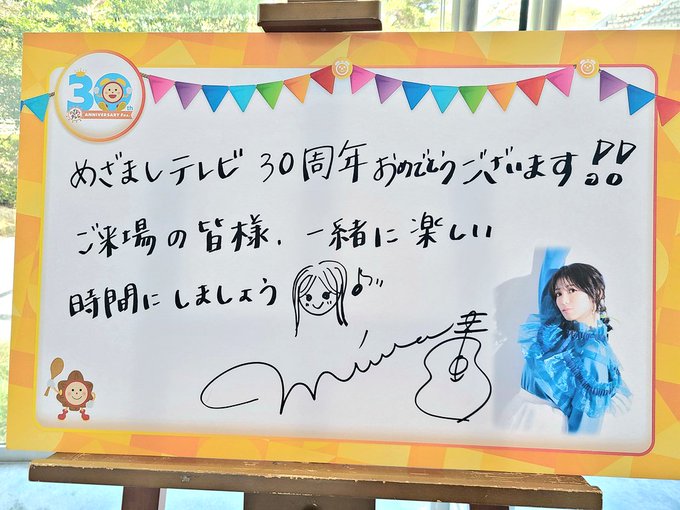 30th
ANNIVERSARY Fes.
めざましテレビ 30周年おめでとうございます!!
ご来場の皆様、一緒に楽しい
時間にしましょう
miwa